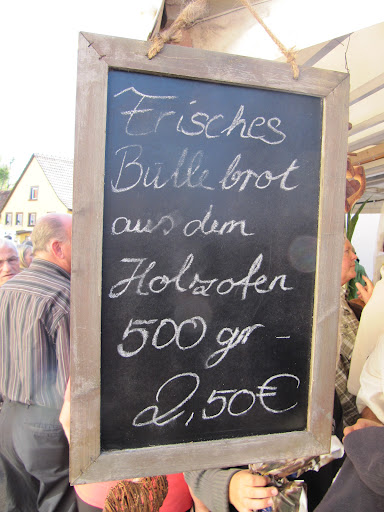 Frisches
Bülle brot
aus dem
Holzofen
500 gr -
2,50€